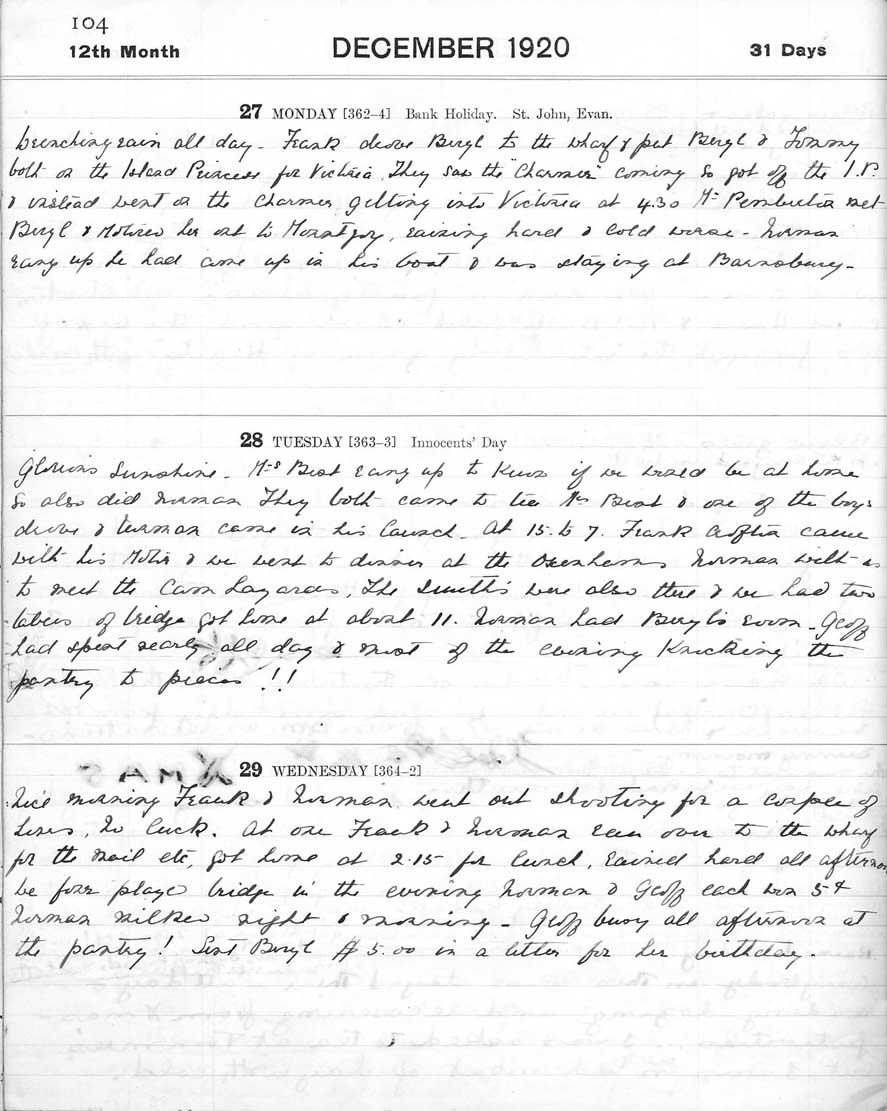 104
12th Month DECEMBER 1920 31 Days
27 MONDAY [362-4] Bank Holiday. St. John, Evan.
Drenching rain all day - Frank drove Beryl to the wharf & put Beryl & Tommy
both on the Island Princess for Victoria. They saw the "Charmer" coming so got off the I.P.
& instead went on the Charmer getting into Victoria at 4.30 Mr Pemberton met
Beryl & Motored her out to Mountjoy, raining hard & cold worse - Norman
rang up he had come up in his boat & was staying at Barnsbury -
28 TUESDAY [363-3] Innocents' Day
Glorious Sunshine - Mrs Best rang up to know if we would be at home
so also did Norman They both came to tea Mrs Best & one of the boys
drove & Norman came in his launch - At 15. to 7. Frank Crofton came
with his Motor & we went to dinner at the Oxenhams Norman with us
to meet the Layards, The Smith's were also there & we had two
tables of bridge got home at about 11. Norman had Beryl's room - Geoff
had spent nearly all day & most of the evening Knocking the
pantry to pieces!!
XMAS
29 WEDNESDAY [364-2]
Nice morning Frank & Norman went out shooting for a couple of
hours, No luck. At one Frank & Norman ran over to the wharf
for the mail etc, got home at 2.15 for lunch, rained hard all afternoon,
we four played bridge in the evening Norman & Geoff each won 5¢
Norman milked night & morning - Geoff busy all afternoon at
the pantry! Sent Beryl $5.00 in a letter for her birthday.